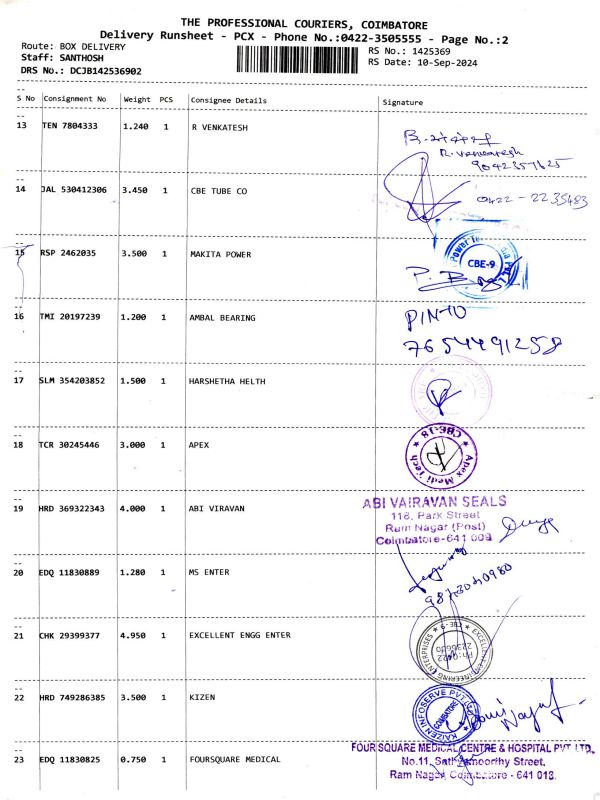 THE PROFESSIONAL COURIERS, COIMBATORE
Delivery Runsheet - PCX - Phone No.:0422-3505555 - Page No.:2
Route: BOX DELIVERY
Staff: SANTHOSH
DRS No.: DCJB142536902
RS No.: 1425369
RS Date: 10-Sep-2024
S No Consignment No Weight PCS Consignee Details Signature
13 TEN 7804333 1.240 1 R VENKATESH
R. Venkatesh
9042357625
14 JAL 530412306 3.450 1 CBE TUBE CO
0422-2235483
15 RSP 2462035 3.500 1 MAKITA POWER
CBE-9
16 TMI 20197239 1.200 1 AMBAL BEARING
PINTO
7654491258
17 SLM 354203852 1.500 1 HARSHETHA HELTH
18 TCR 30245446 3.000 1 APEX
CBE-18
Apex Medi Tech
19 HRD 369322343 4.000 1 ABI VIRAVAN
ABI VAIRAVAN SEALS
116, Park Street
Ram Nagar (Post)
Coimbatore-641 009
20 EDQ 11830889 1.280 1 MS ENTER
21 CHK 29399377 4.950 1 EXCELLENT ENGG ENTER
EXCELLENT ENGINEERING ENTERPRISES
CBE-9
Ph:0422
22 HRD 749286385 3.500 1 KIZEN
KAIZEN INFOSERVE PVT
COIMBATORE
23 EDQ 11830825 0.750 1 FOURSQUARE MEDICAL
FOUR SQUARE MEDICAL CENTRE & HOSPITAL PVT LTD.
No.11, Sathyamoorthy Street,
Ram Nagar, Coimbatore - 641 018.